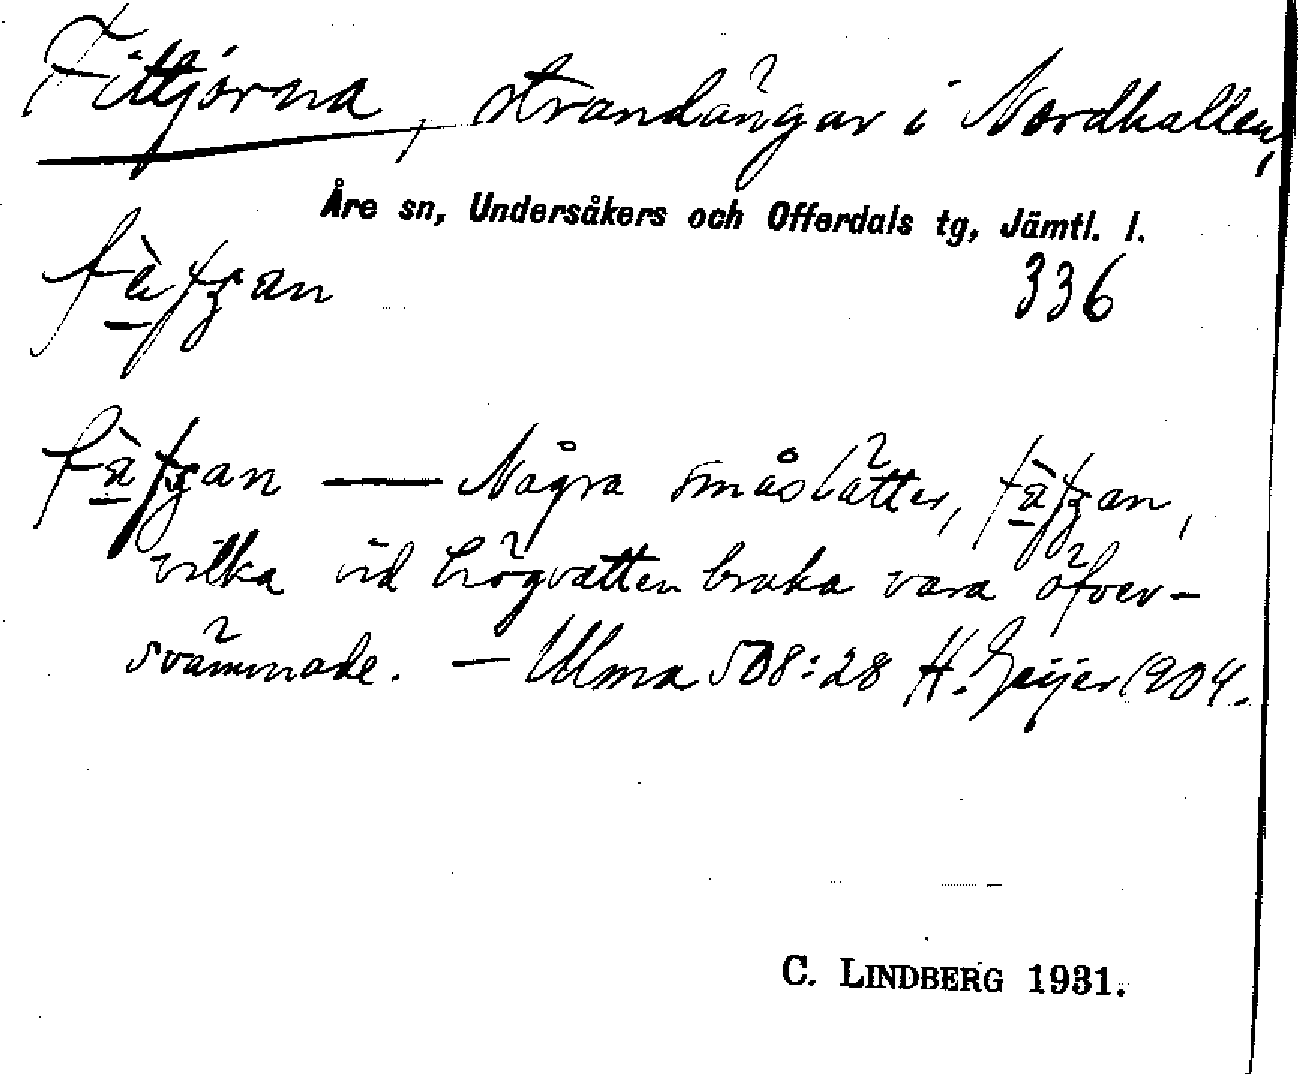 Fittjorna, strandängar i Nordhallen,
Åre sn, Undersåkers och Offerdals tg, Jämtl. l.
336
— Några småslåtter,
vilka vid högvatten bruka vara öfver-
svämmade. — Ulma 508:28 H. Geijer 1904.
C. LINDBERG 1931.